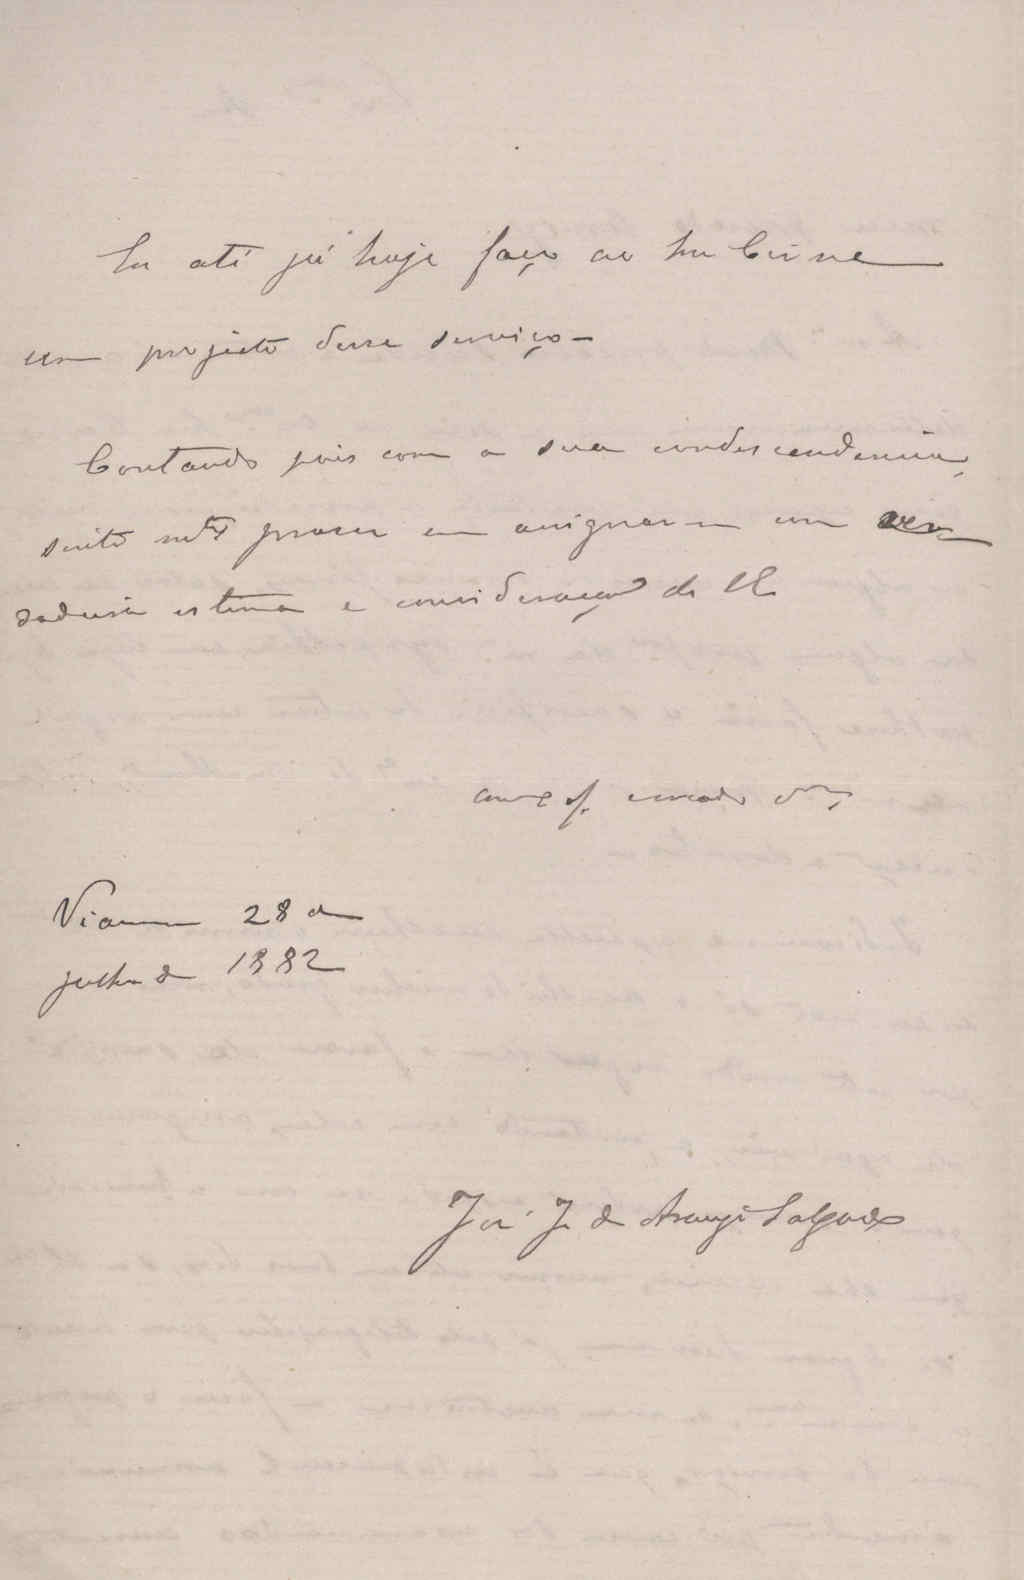 Eu até já hoje faço ao Snr Cirne
um projecto desse serviço -
Contando pois com a sua condescendencia,
sinto mto praser em assignar-me com ver-
dadeira estima e consideração de V.
Amo af. creado
Vianna 28 de
julho de 1882
José J. de Araujo Salgado